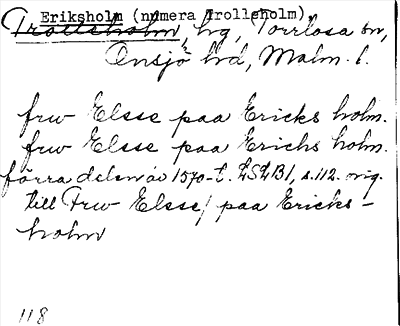 Eriksholm (numera Trollsholm)
Trollsholm, hrg, Torrlösa sn,
Onsjö hd, Malm. l.
frw Elsse paa Ericks holm.
frw Elsse paa Erichs holm.
förra delen av 1570-t. LSLB1, s.112. orig.
till Frw Elsse/ paa Ericks-
holm
118